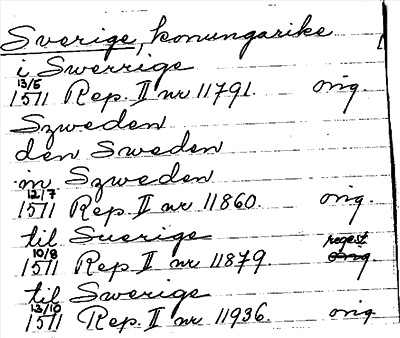 Sverige, konungarike
i Swerrige
13/5
1511 Rep. II nr 11791. orig.
Szweden
den Sweden
in Szweden
12/7
1511 Rep. II nr 11860. orig.
til Suerige
10/8 regest
1511 Rep. II nr 11879. orig
til Swerige
13/10
1511 Rep. II nr 11936. orig